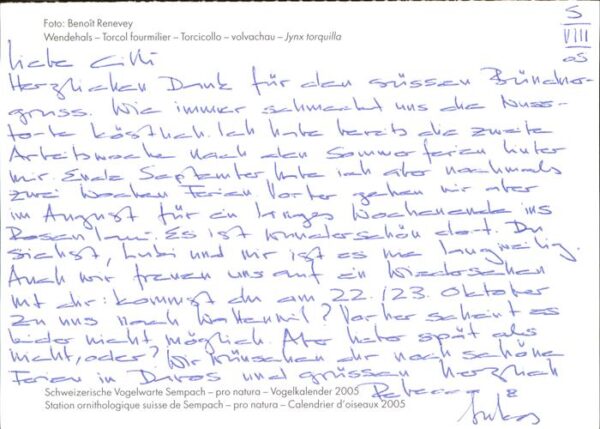 Foto: Benoît Renevey
Wendehals – Torcol fourmilier – Torcicollo – volvachau – Jynx torquilla
5
VIII
05
Liebe Cilli
Herzlichen Dank für den süssen Bündner-
gruss. Wie immer schmeckt uns die Nuss-
torte köstlich. Ich habe bereits die zweite
Arbeitswoche nach den Sommerferien hinter
mir. Ende September habe ich aber nochmals
zwei Wochen Ferien. Vorher gehen wir aber
im August für ein langes Wochenende ins
Rosenlaui. Es ist wunderschön dort. Du
siehst, Lubi und mir ist es nie langweilig.
Auch wir freuen uns auf ein Wiedersehen
mit dir: kommst du am 22./23. Oktober
zu uns nach Wattenwil? Vorher scheint es
leider nicht möglich. Aber lieber spät als
nicht, oder? Wir wünschen dir noch schöne
Ferien in Davos und grüssen herzlich
Rebecca &
Lukas
Schweizerische Vogelwarte Sempach – pro natura – Vogelkalender 2005
Station ornithologique suisse de Sempach – pro natura – Calendrier d'oiseaux 2005